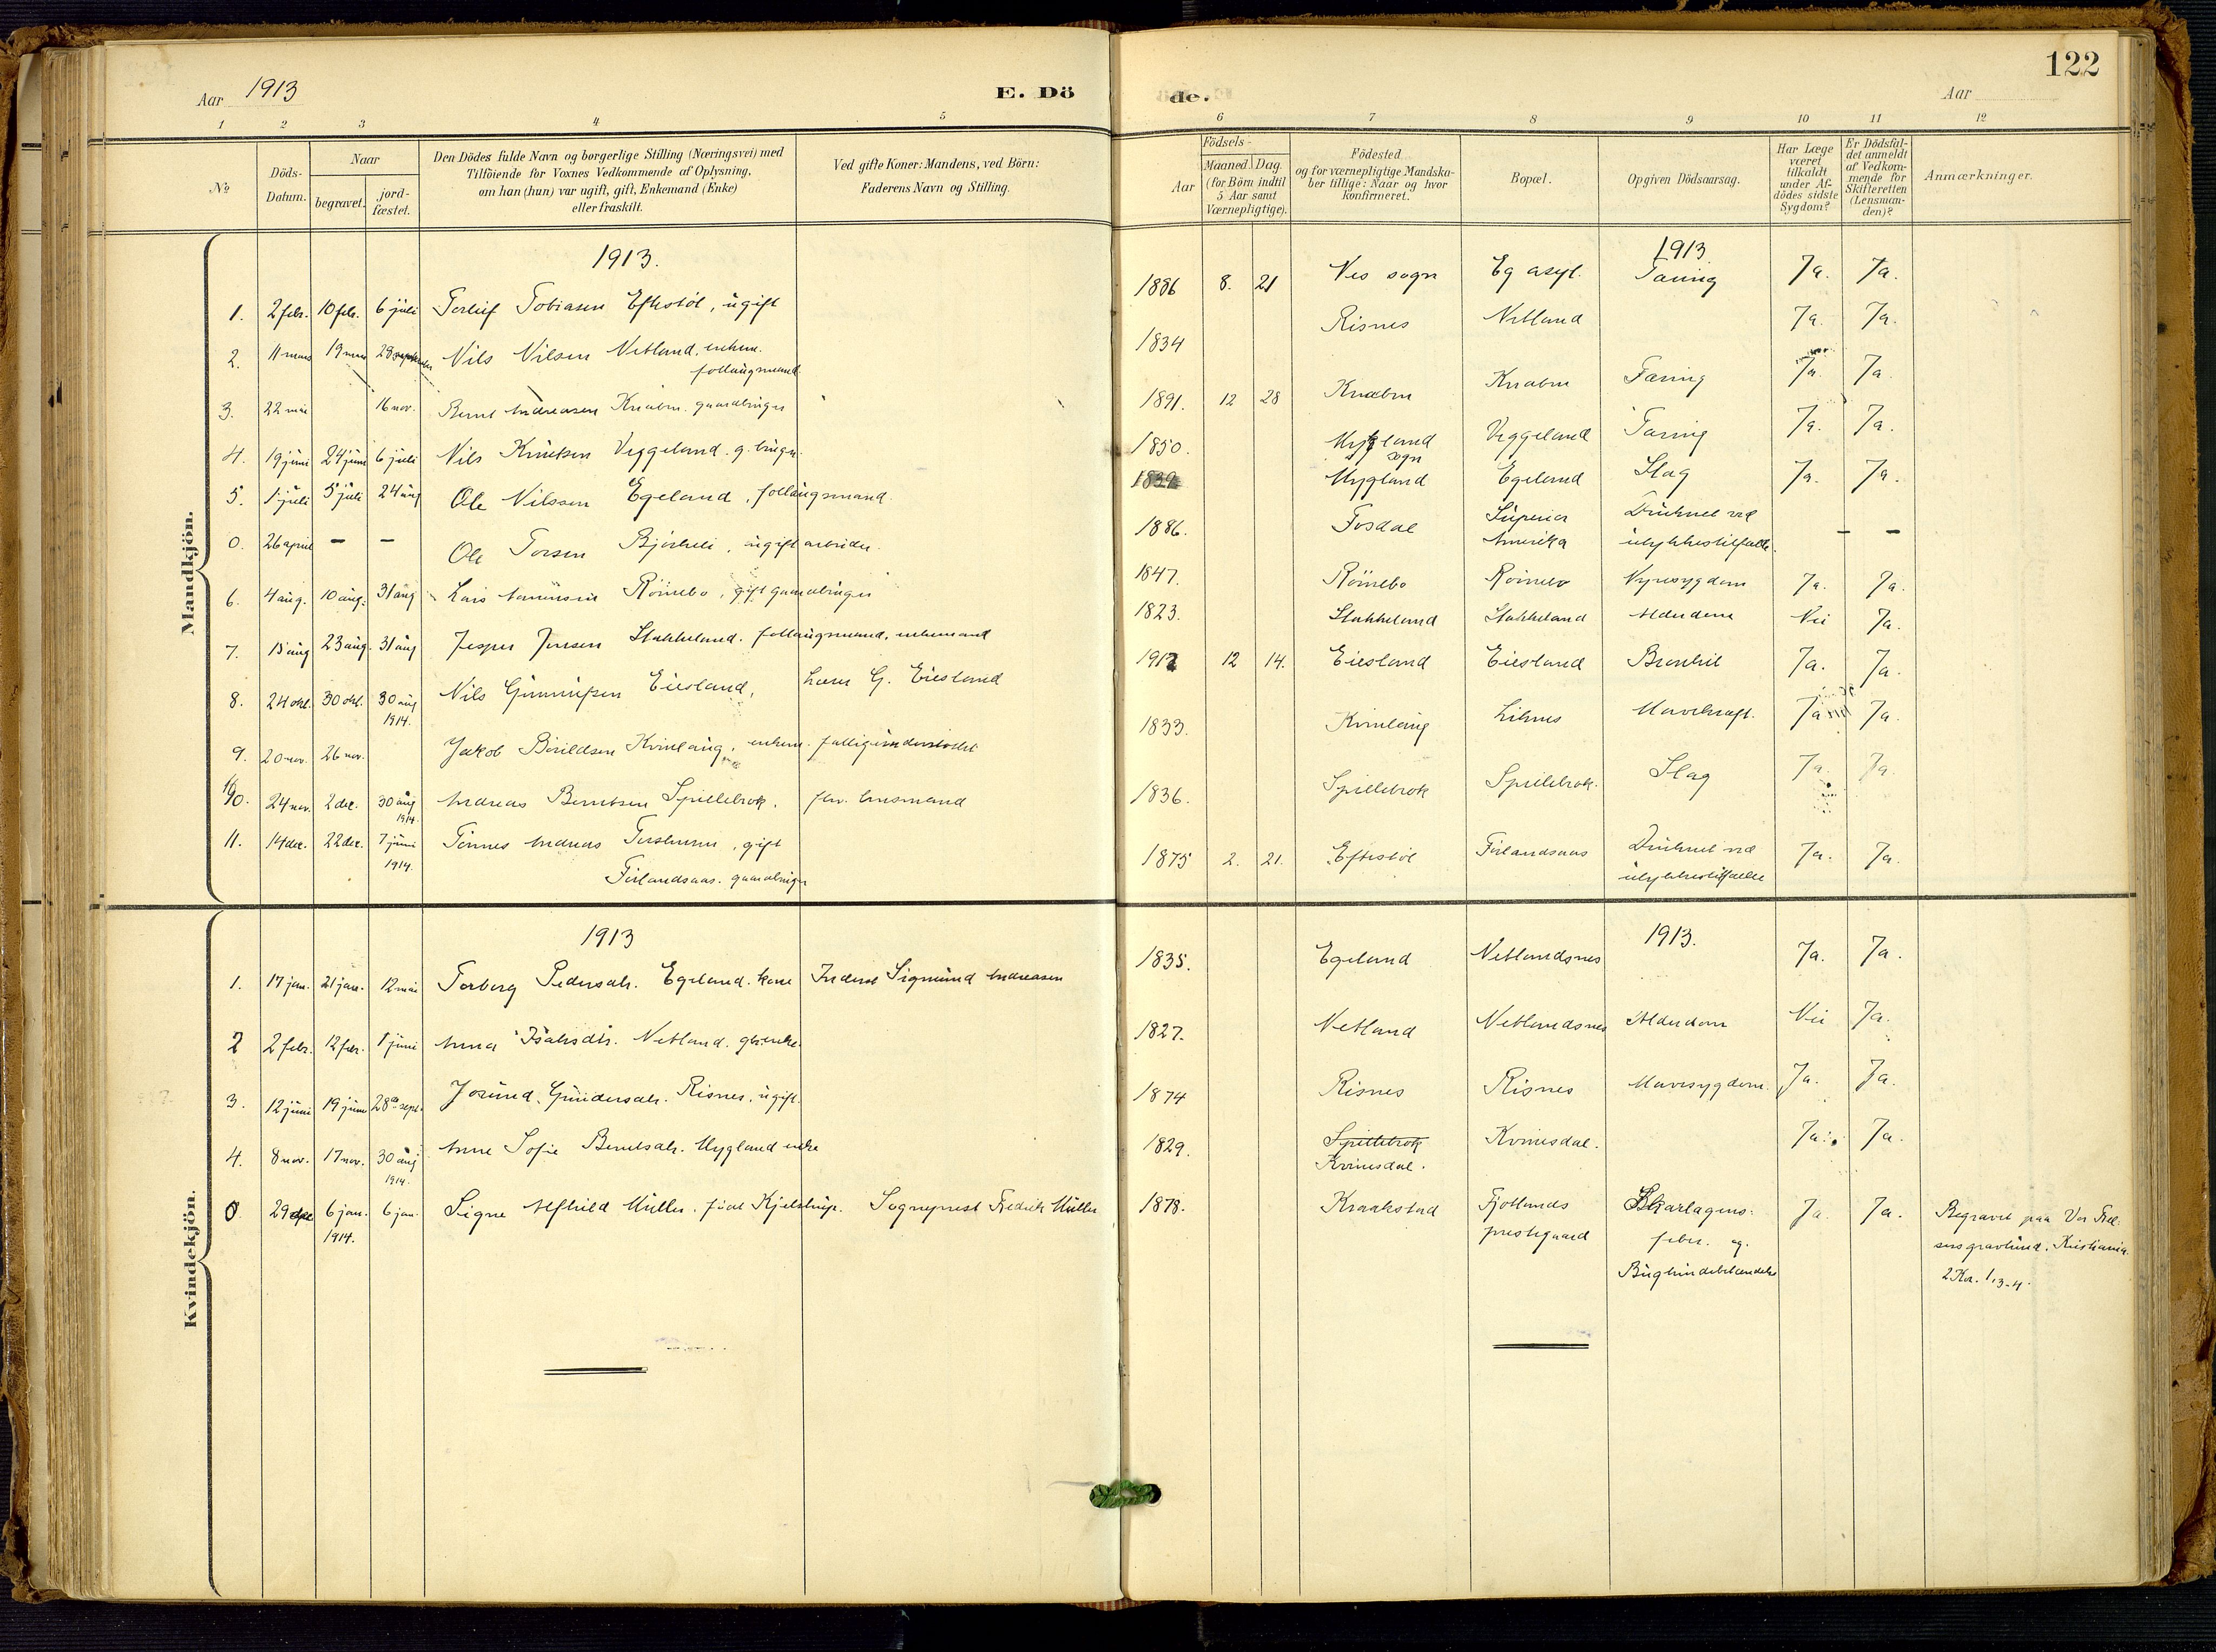 122
Aar 1913
E. Dö
de.
Aar
1 2 3 4 5 6 7 8 9 10 11 12
№
Döds-
Datum.
Naar
begravet.
jord-
fæstet.
Den Dödes fulde Navn og borgerlige Stilling (Næringsvei) med
Tilföiende for Voxnes Vedkommende af Oplysning,
om han (hun) var ugift, gift, Enkemand (Enke)
eller fraskilt.
Ved gifte Koner: Mandens, ved Börn:
Faderens Navn og Stilling.
Födsels-
Aar
Maaned. Dag.
(for Börn indtil
5 Aar samt
Værnepligtige).
Födested
og for værnepligtige Mandska-
ber tillige: Naar og hvor
konfirmeret.
Bopæl.
Opgiven Dödsaarsag.
Har Læge
været
tilkaldt
under Af-
dödes sidste
Sygdom?
Er Dödsfal-
det anmeldt
af Vedkom-
mende for
Skifteretten
(Lensman-
den)?
Anmærkninger.
Mandkjön.
1913.
1913.
1. 2 febr. 10 febr. 6 juli Torleif Tobiasen Eftestöl, ugift 1886 8. 21 Nes sogn Eg asyl. Tæring Ja. Ja.
2. 11 mars 19 mars 28 september Nils Nilsen Netland, enkem. 1834 Risnes Netland Ja. Ja.
follaugsmand
3. 22 mai 16 nov. Bernt Andreasen Knaben gaardbruger 1891. 12 28 Knaben Knaben Tæring Ja. Ja.
4. 19 juni 24 juni 6 juli Nils Knutsen Veggeland. g. bruger. 1850. Mygland Veggeland Tæring Ja. Ja.
sogn
5. 1 juli 5 juli 24 aug Ole Nilssen Egeland, follaugsmand. 1834 Mygland Egeland Slag Ja. Ja.
0. 26 april — — Ole Torsen Bjørkeli, ugift arbeider. 1886. Fosdal Superior Druknet ved — —
Amerika ulykkestilfælde.
6. 4 aug. 10 aug. 31 aug Lars Rømebo, gift gaardbruger 1847. Rømebo Rømebo Nyresygdom Ja. Ja.
7. 15 aug 23 aug. 31 aug Jesper Jensen Stakkeland. follaugsmand, enkemand 1823. Stakkeland Stakkeland Alderdom Nei Ja.
8. 24 okt. 30 okt. 30 aug Nils Gunnufsen Eiesland, G. Eiesland 1912 12 14. Eiesland Eiesland Bronkit Ja. Ja.
1914.
9. 20 nov. 26 nov. Jakob Bårildsen Kvinlaug, enkem. fattigunderstøttet 1833. Kvinlaug Lihnes Mavekræft. Ja Ja.
10. 24 nov. 2 dec. 30 aug Andreas Berntsen Spillebrok. fhv. lensmand 1836. Spillebrok Spillebrok. Slag Ja. Ja.
1914.
11. 14 dec. 22 dec. 7 juni Tönnes Andreas, gift 1875 2. 21. Eftestöl Förlandsaas Druknet ved Ja. Ja.
1914. Förlandsaas. gaardbruger ulykkestilfælde
Kvindekjön.
1913
1913.
1. 17 jan. 21 jan. 12 mai Torborg Pedersdtr. Egeland. kone Inderst Sigmund Andreasen 1835. Egeland Netlandsnes Ja. Ja.
2 2 febr. 12 febr. 1 juni Anna Isaksdtr. Netland. gbr.enke. 1827. Netland Netlandsnes Alderdom Nei Ja.
3. 12 juni 19 juni 28de sept. Jorund Gundersdtr. Risnes, ugift. 1874 Risnes Risnes Mavesygdom. Ja. Ja.
4. 8 nov. 17 nov. 30 aug Anne Sofie Berntsdtr. Mygland enke 1829. Spillebrok Kvinesdal. Ja. Ja.
1914. Kvinesdal.
0. 29 dec 6 jan. 6 jan. Signe Alfhild Müller, født Kjelstrup. Sogneprest Fredrik Müller 1878. Kraakstad Fjotlands Skarlagens- Ja. Ja. Begravet paa Vor Frel-
1914. prestegaard feber. og sers gravlund. Kristiania.
Bughindebetændelse 2 Kor. 1, 3-4.